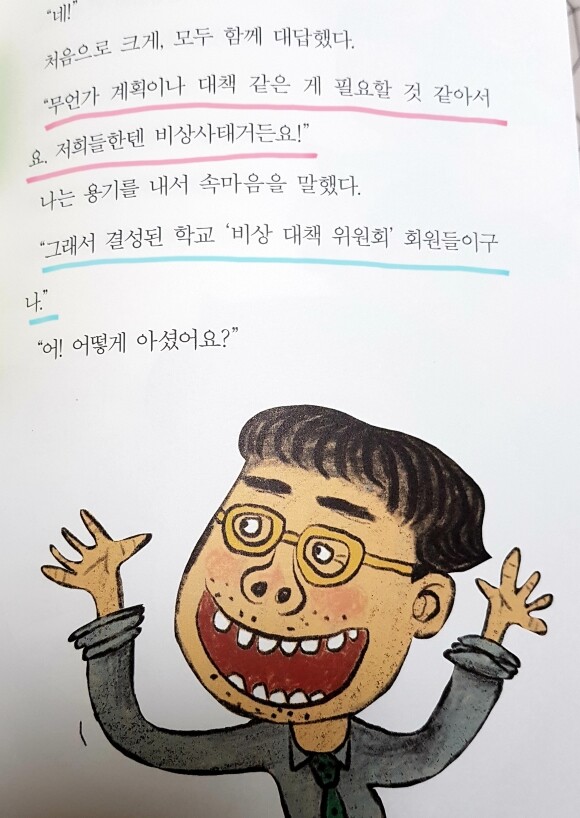 “네!”
처음으로 크게, 모두 함께 대답했다.
“무언가 계획이나 대책 같은 게 필요할 것 같아서
요. 저희들한텐 비상사태거든요!”
나는 용기를 내서 속마음을 말했다.
“그래서 결성된 학교 ‘비상 대책 위원회’ 회원들이구
나.”
“어! 어떻게 아셨어요?”